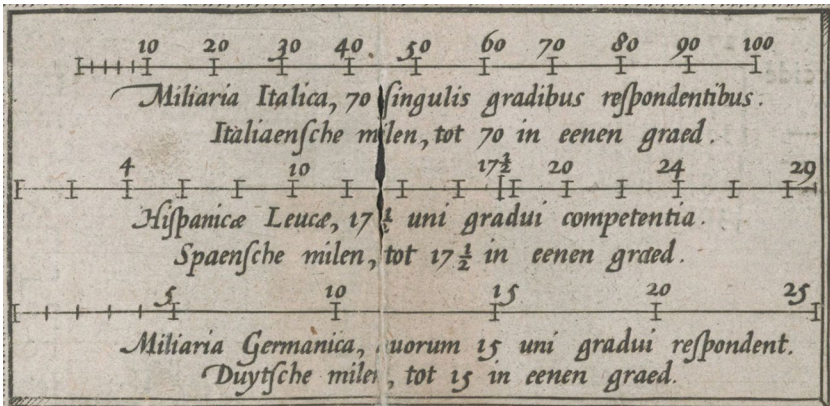 10 20 30 40 50 60 70 80 90 100
Miliaria Italica, 70 ſingulis gradibus reſpondentibus.
Italiaenſche milen, tot 70 in eenen graed.
4 10 17½ 20 24 29
Hiſpanicæ Leucæ, 17½ uni gradui competentia.
Spaenſche milen, tot 17½ in eenen graed.
5 10 15 20 25
Miliaria Germanica, quorum 15 uni gradui reſpondent.
Duytſche milen, tot 15 in eenen graed.